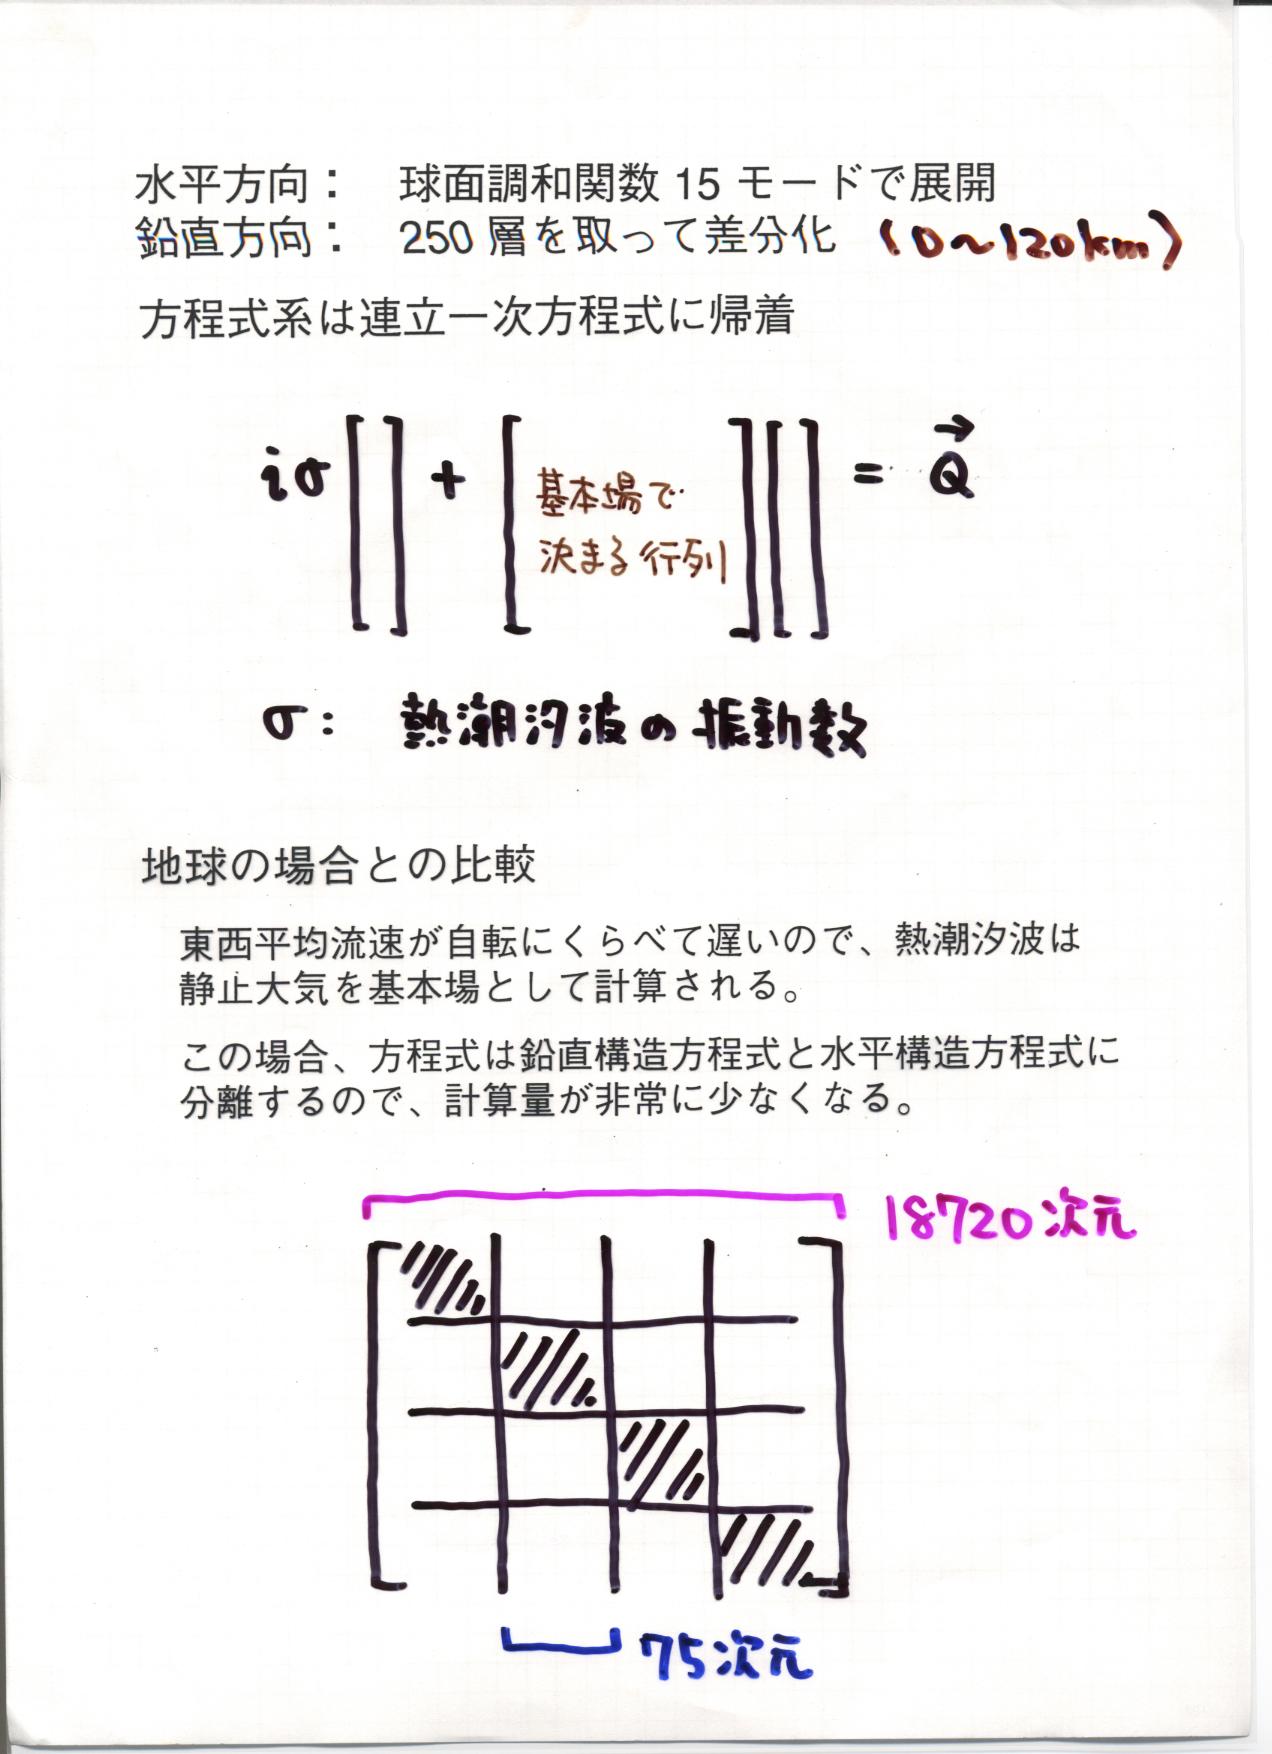 水平方向： 球面調和関数 15 モードで展開
鉛直方向： 250 層を取って差分化 (0～120km)
方程式系は連立一次方程式に帰着
iσ [ ] + [ 基本場で
決まる行列 ] [ ] = Q⃗
σ: 熱潮汐波の振動数
地球の場合との比較
東西平均流速が自転にくらべて遅いので、熱潮汐波は
静止大気を基本場として計算される。
この場合、方程式は鉛直構造方程式と水平構造方程式に
分離するので、計算量が非常に少なくなる。
18720次元
75次元